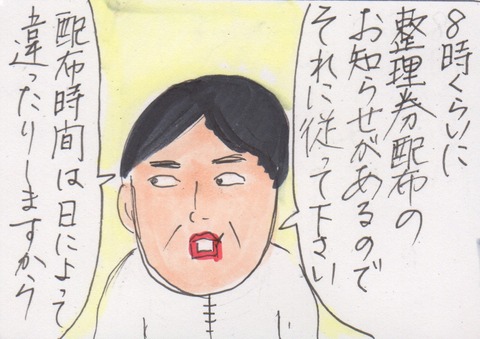 8時くらいに
整理券配布の
お知らせがあるので
それに従って下さい
配布時間は日によって
違ったりしますから